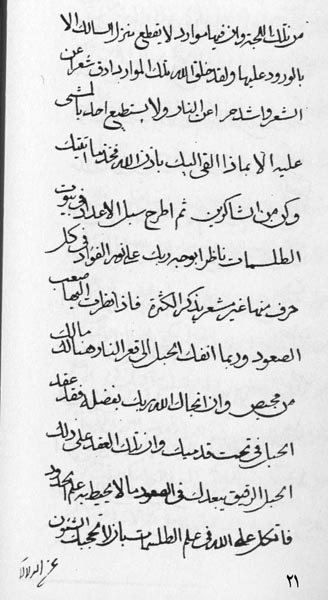 من تلك اللجة وان فيها موارد لا يقطع منزل السالك الا
بالورود عليها ولقد خلق الله تلك الموارد ادق شعر عن
الشعر واشد حرا عن النار ولا يستطيع احد بالمشى
عليه الا بماذا القى اليك باذن الله فخذ ما اتيتك
وكن من الشاكرين ثم اطرح سبل الاعداد فى بيوت
الظلمات ناظرا بوجه ربك على نور الفواد فى كل
حرف منها غير مشعر بذكر الكثرة فاذا نظرت اليها صعب
الصعود وربما انفك الحبل الى قعر النار هنالك مالك
من محيص وان انجاك الله ربك بفضله فقد عقد
الحبل فى تحت قدميك وان تلك العقد على ذلك
الحبل الدقيق يبعدك فى الصعود ما لا يحيط به علم الحدود
فاتكل على الله فى علم الطلسمات لا تحجبك الشئون
٢١